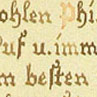 ohlen Phi
Ruf u. imm
m besten